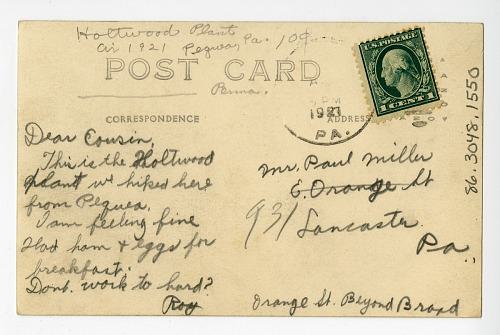 Holtwood Plant
Cir 1921 Pequea, Pa. 109
POST CARD
Penna.
CORRESPONDENCE
ADDRESS
U.S. POSTAGE
1 CENT 1
PM
1921
PA.
86.3048.1550
Dear Cousin,
This is the Holtwood
plant we hiked here
from Pequea.
I am feeling fine
Had ham & eggs for
breakfast.
Dont work to hard?
Roy
Mr. Paul Miller
E. Orange St
931 Lancaster.
Pa
Orange St. Beyond Broad